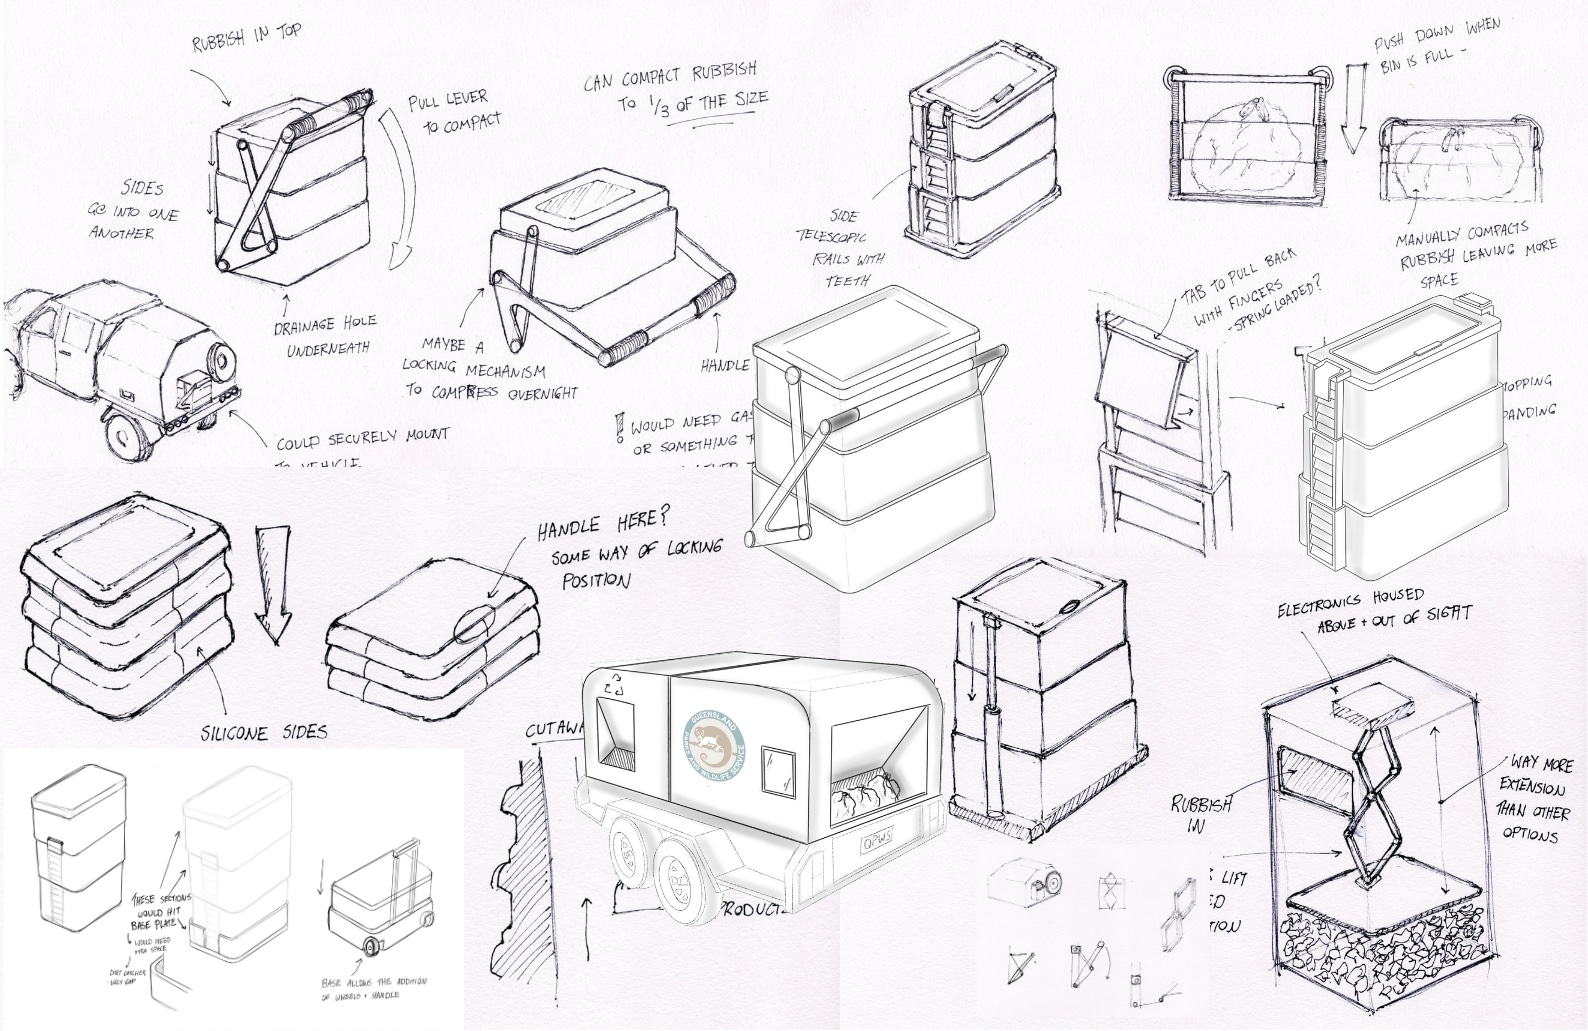 RUBBISH IN TOP
PULL LEVER
TO COMPACT
SIDES
GO INTO ONE
ANOTHER
DRAINAGE HOLE
UNDERNEATH
COULD SECURELY MOUNT
TO VEHICLE
CAN COMPACT RUBBISH
TO 1/3 OF THE SIZE
MAYBE A
LOCKING MECHANISM
TO COMPRESS OVERNIGHT
HANDLE
! WOULD NEED GAS
OR SOMETHING
SIDE
TELESCOPIC
RAILS WITH
TEETH
PUSH DOWN WHEN
BIN IS FULL -
MANUALLY COMPACTS
RUBBISH LEAVING MORE
SPACE
TAB TO PULL BACK
WITH FINGERS
- SPRING LOADED?
OPPING
PANDING
HANDLE HERE?
SOME WAY OF LOCKING
POSITION
SILICONE SIDES
CUTAWA
QUEENSLAND
PARKS AND WILDLIFE SERVICE
QPWS
PRODUCT
ELECTRONICS HOUSED
ABOVE + OUT OF SIGHT
RUBBISH
IN
WAY MORE
EXTENSION
THAN OTHER
OPTIONS
LIFT
ED
TION
THESE SECTIONS
WOULD HIT
BASE PLATE
WOULD NEED
XTRA SPACE
DIRT CATCHER
UGLY GAP
BASE ALLOWS THE ADDITION
OF WHEELS + HANDLE